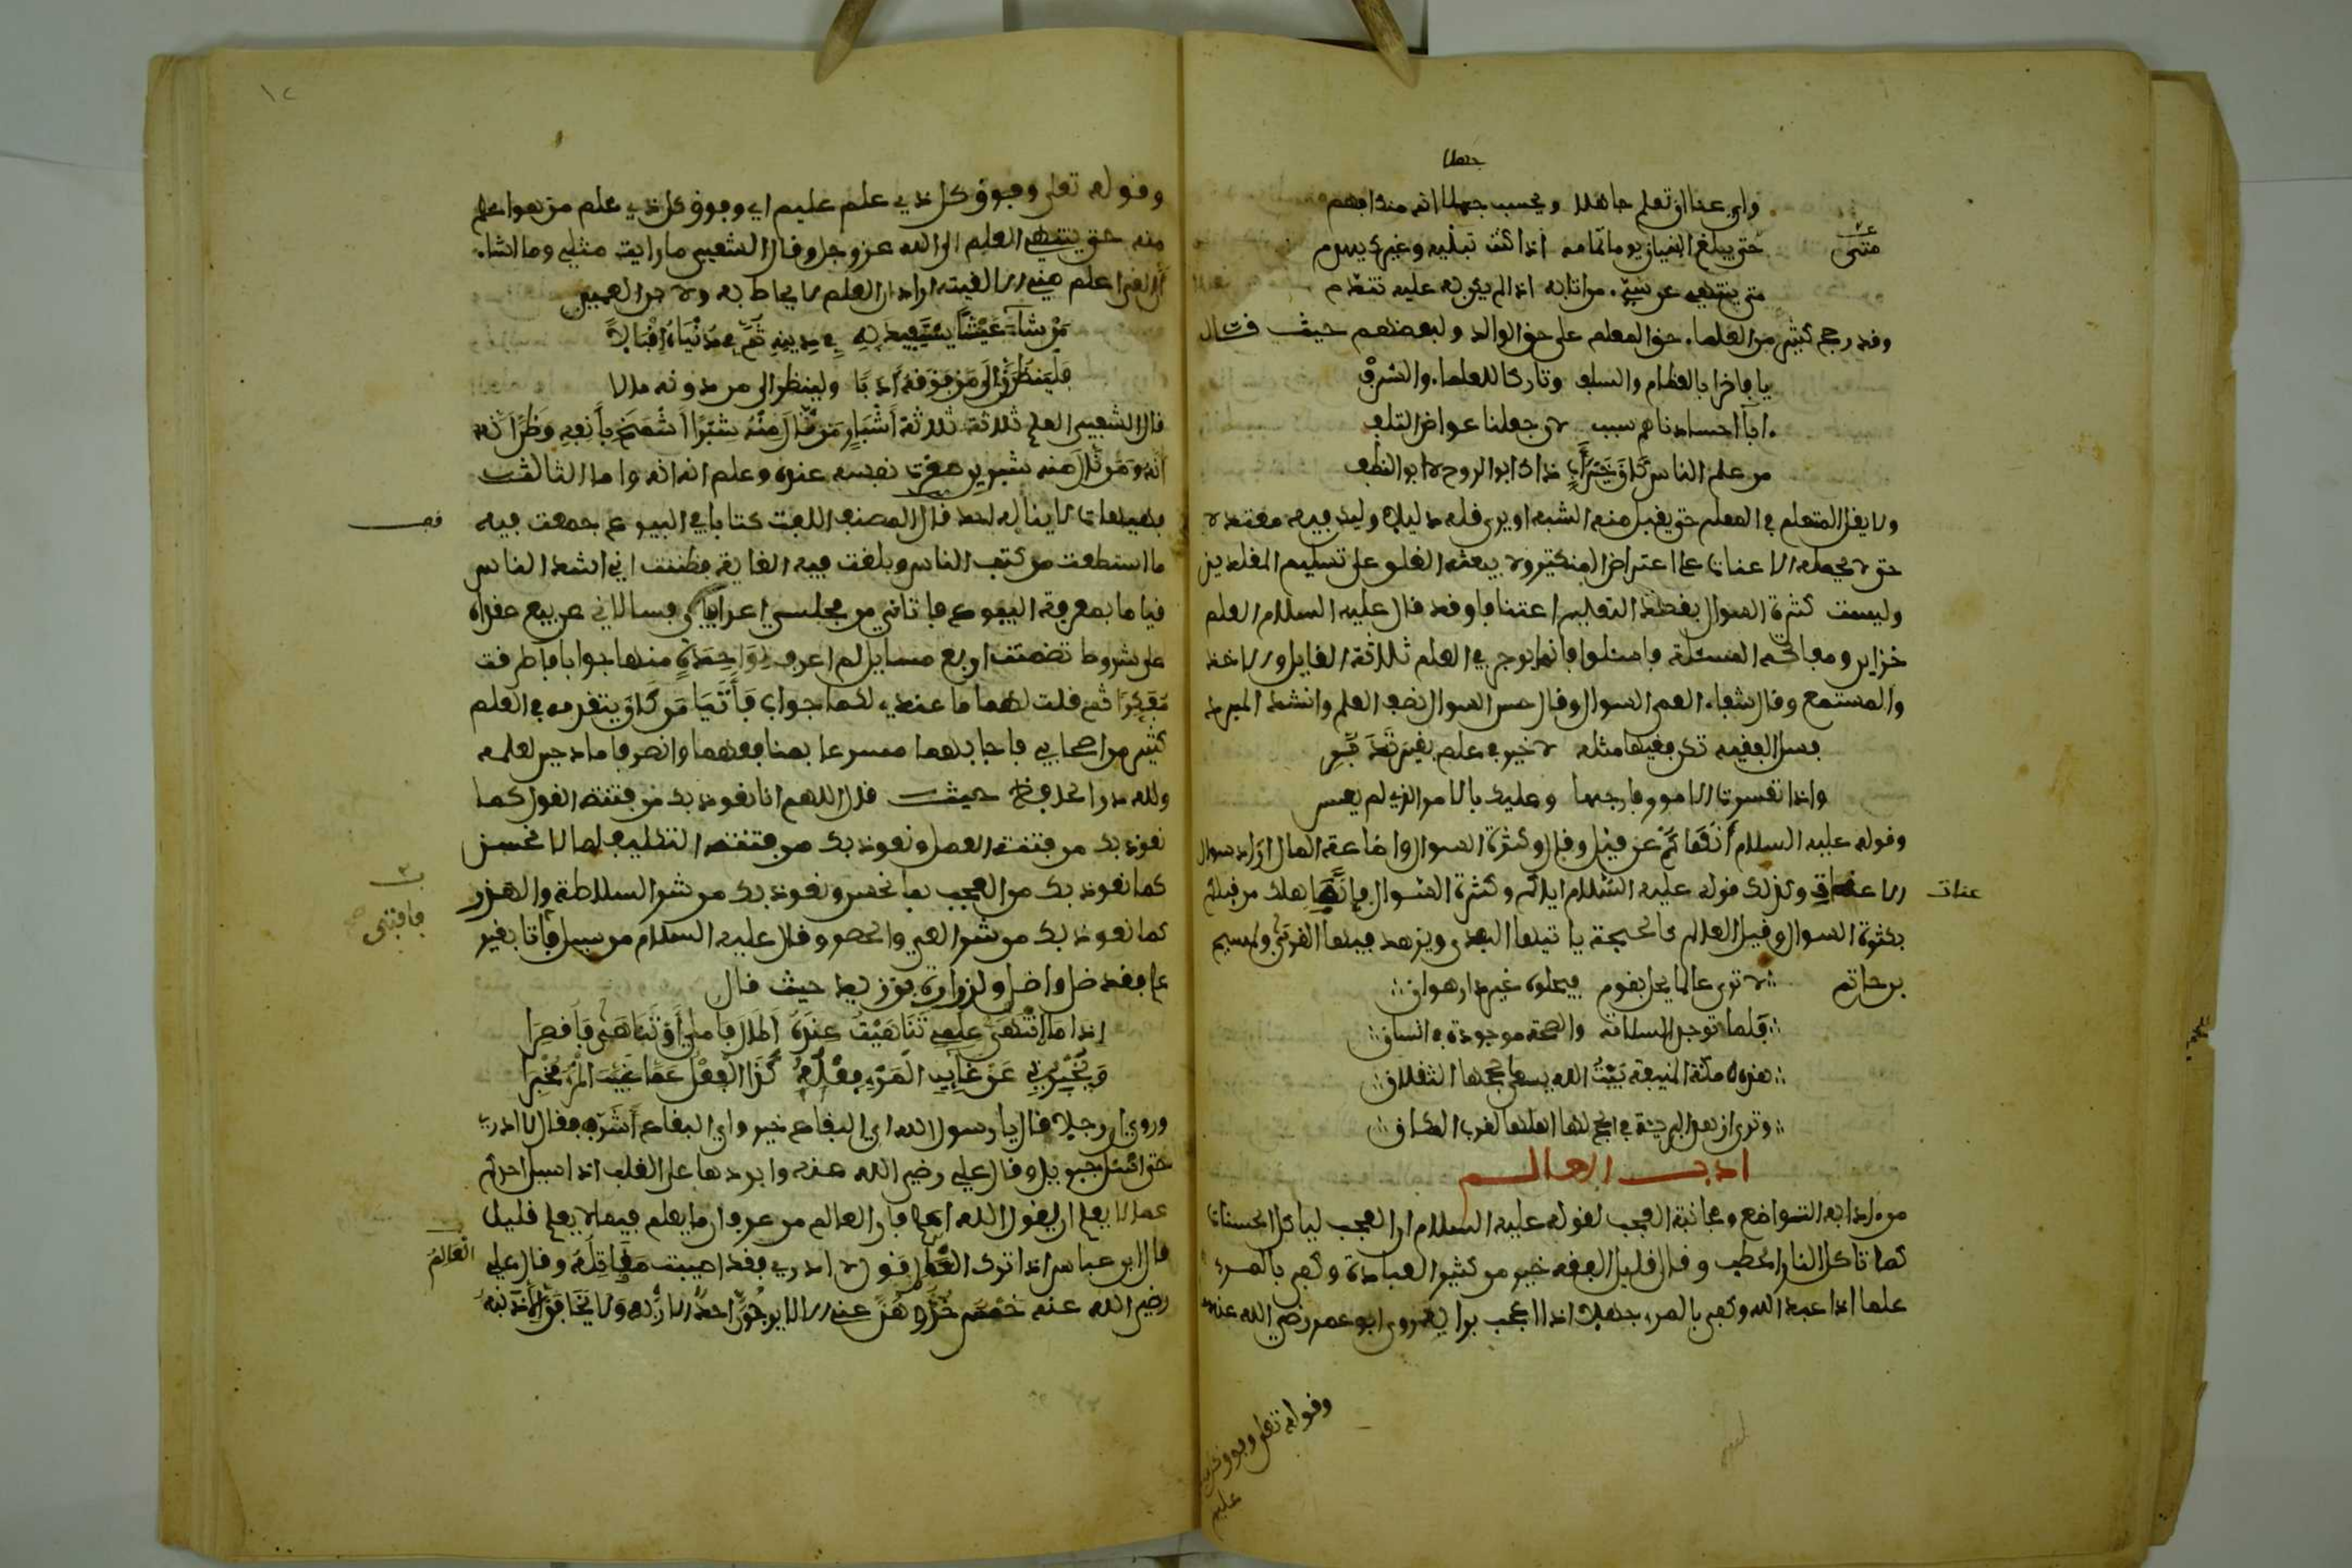 جهلا
وان عنا ان تعلم جاهلا ويحسب جهلا انه منك افهم
متى يبلغ البنيان يوما تمامه اذا كنت تبنيه وغيرك يهدم
متى
متى ينتهي عن سيء من اتى به اذا لم يكن له عليه تندم
وقد رجح كثير من العلماء حق المعلم على حق الوالد ولبعضهم حيث قال
يا فاخرا بالعظام والسلف وتاركا للعلماء والشرف
اباء اجسادنا هم سبب لان جعلنا عواض التلف
من علم الناس كان خير اب ذاك ابو الروح لا ابو النطف
ولا يقل المتعلم في المعلم حتى يقبل منه الشبه او يرى قله دليلا وليك فيه معتدلا
حتى لا يحمله الاعنات على اعتراض المنكثير ولا يبعثه الغلو على تسليم المقلدين
وليست كثرة السوال اعتناتا وقد قال عليه السلام العلم
خزاين ومفاتحه المسئلة فاسئلوا فانما يوجر في العلم ثلاثة القايل والاخذ
والمستمع وقال شفاء العي السوال وقال حسن السوال نصف العلم وانشد المبرد
فسل الفقيه تكن فقيها مثله لا خير في علم بغير تدبر
واذا تعسرت الامور فارجها وعليك بالامر الذي لم يعسر
وقوله عليه السلام انهاكم عن قيل وقال وكثرة السوال واضاعة المال اراد سوال
الاعنات وكذلك قوله عليه السلام اياكم وكثرة السوال فانما هلك من قبلكم
عنات
بكثرة السوال وقيل العالم كالحجة ياتيها البعدى ويزهد فيها القربى ولمسبح
بن حاتم لا ترى عالما يحل بقوم فيحلوه غير دار هوان
قلما توجد السلامة والصحة موجودة في انسان
هذه مكة المنيفة بيت الله يسعى لحجها الثقلان
وترى ازهد البرية في الحج لها اهلها لقرب المكان
ادب العالم
من ادابه التواضع ومجانبة العجب لقوله عليه السلام ان العجب لياكل الحسنات
كما تاكل النار الحطب وقال قليل الفقه خير من كثير العبادة وكفى بالمرء
علما اذا عبد الله وكفى بالمرء جهلا اذا اعجب برايه وروى ابو عمر رضي الله عنه
وقوله تعلى وفوق كل ذي علم عليم
١٢
وقوله تعلى وفوق كل ذي علم عليم اي وفوق كل ذي علم من هو اعلم
منه حتى ينتهي العلم الى الله عز وجل وقال الشعبي ما رايت مثلي وما اشاء
ان القى اعلم مني الا لقيته اراد ان العلم لا يحاط به ولابن العميد
من شاء عيشا يستفيد به في دينه ثم في دنياه اقبالا
فلينظرن الى من فوقه ادبا ولينظر الى من دونه مالا
قال الشعبي العلم ثلاثة ثلاثة اشبار من نال منه شبرا اشمخ بانفه وظن انه
انه ومن نال منه شبرين صغرت نفسه عنده وعلم انه انه واما الثالث
فهيهات لا يناله احد قال المصنف الفت كتابا في البيوع جمعت فيه
قف
ما استطعت من كتب الناس وبلغت فيه الغاية فظننت اني اشد الناس
قياما بمعرفة البيوع فاتاني من مجلسي اعرابيان فسالاني عن بيع عقداه
على شروط تضمنت اربع مسايل لم اعرف لواحدة منها جوابا فاطرقت
مفكرا ثم قلت لهما ما عندي لكما جواب فاتيا من كان يتقدمه في العلم
كثير من اصحابي فاجابهما مسرعا بما اقنعهما وانصرفا مادحين لعلمه
ولله در الجاحظ حيث قال اللهم انا نعوذ بك من فتنة القول كما
نعوذ بك من فتنة العمل ونعوذ بك من فتنة التكليف لما لا نحسن
كما نعوذ بك من العجب بما نحسن ونعوذ بك من شر السلاطة والهذر
كما نعوذ بك من شر العي والحصر وقال عليه السلام من سيل فافتا بغير
فافتى صح
علم فقد ضل واضل ولزرارة بن زيد حيث قال
اذا ما انتهى علمي تناهيت عنده اطال فاملي او تناهى فاقصرا
ويخبرني عن غايب المرء فعله كفى العقل عما غيب المرء مخبرا
وروي ان رجلا قال يا رسول الله اي البقاع خير واي البقاع اشر فقال لا ادري
حتى اسئل جبريل وقال علي رضي الله عنه وابردها على القلب اذا سيل احدكم
عما لا يعلم ان يقول الله اعلم فان العالم من عرف ان ما يعلم فيما لا يعلم قليل
العالم
قال ابن عباس اذا ترك العالم قول لا ادري فقد اصيبت مقاتله وقال علي
رضي الله عنه خمس خذوهن عني الا لا يرجون احد الا ربه ولا يخافن الا ذنبه